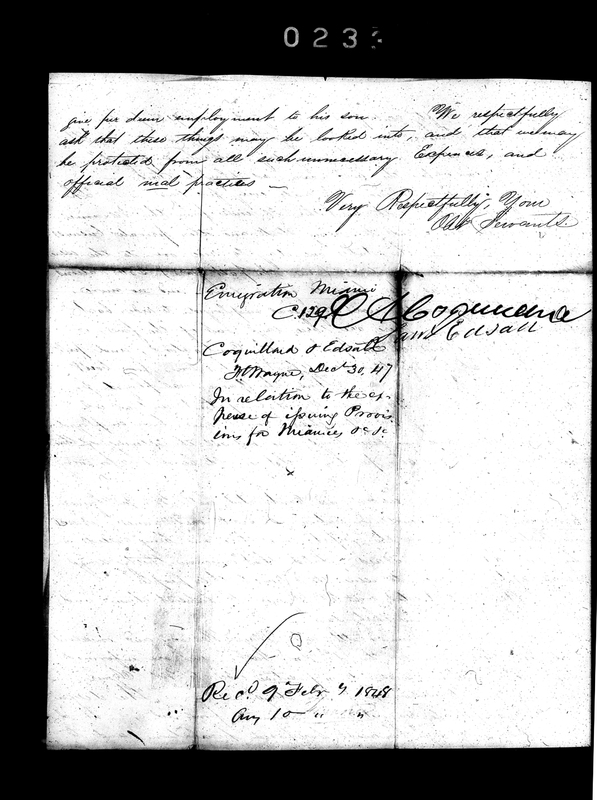 0233
give per diem employment to his son. We respectfully
ask that these things may be looked into, and that we may
be protected from all such unnecessary Expences, and
official mal practices —
Very Respectfully, Your
Obt Servants
Emigration Miami
C129
A Coquillard
Saml Edsall
Coquillard & Edsall
Ft Wayne, Decr 30, 47
In relation to the ex-
pense of issuing Provis
ions for Miamies &c &c
x
Recd 9 Feby 1848
10 " "